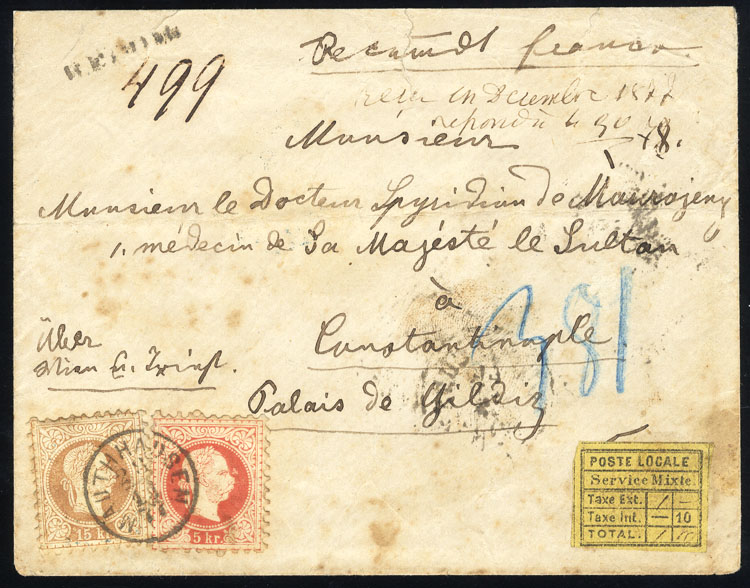 499
Recomdt franco.
reçu en Décembre 1877
repondu le 30
78.
Monsieur
Monsieur le Docteur Spyridion de Maurojeny
1. médecin de Sa Majésté le Sultan
à
Constantinople
Palais de Yildiz
381
Über
Wien u. Triest.
MAUTHHAUSEN
15 kr.
5 kr.
POSTE LOCALE
Service Mixte.
Taxe Ext. 1 –
Taxe Int. – 10
TOTAL. 1 10